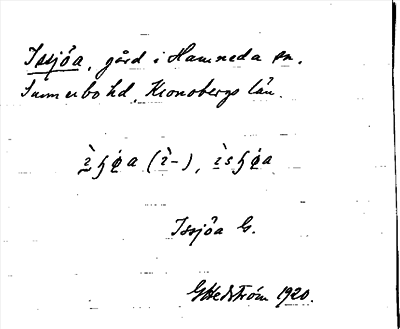 Issjöa, gård i Hamneda sn.
Sunnerbo hd, Kronobergs län.
Issjöa G.
GHedström 1920.